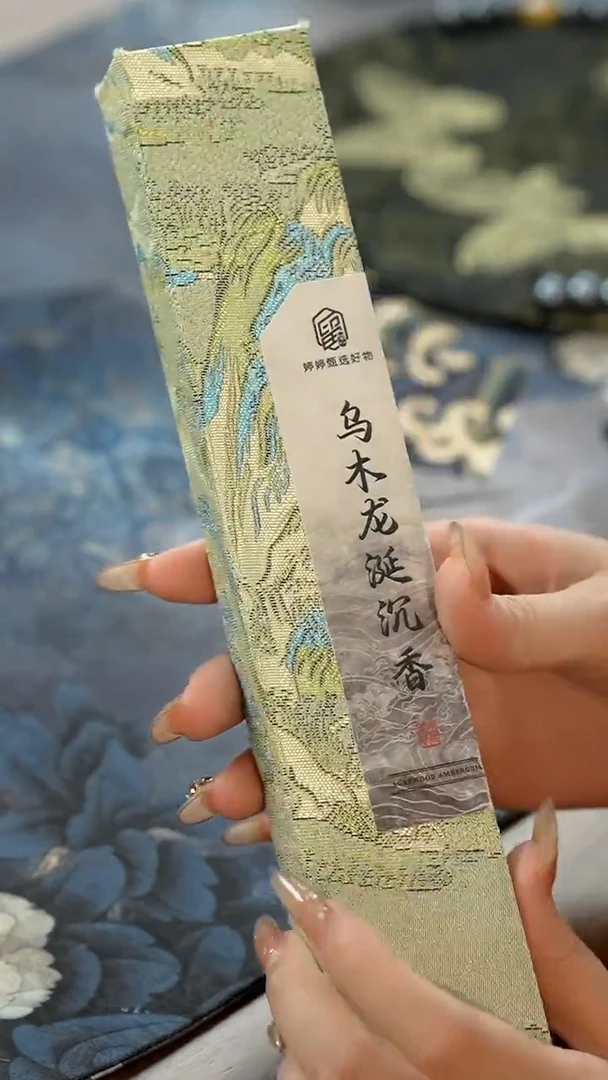 婷婷甄选好物
乌木龙涎沉香
AGARWOOD AMBERGRIS